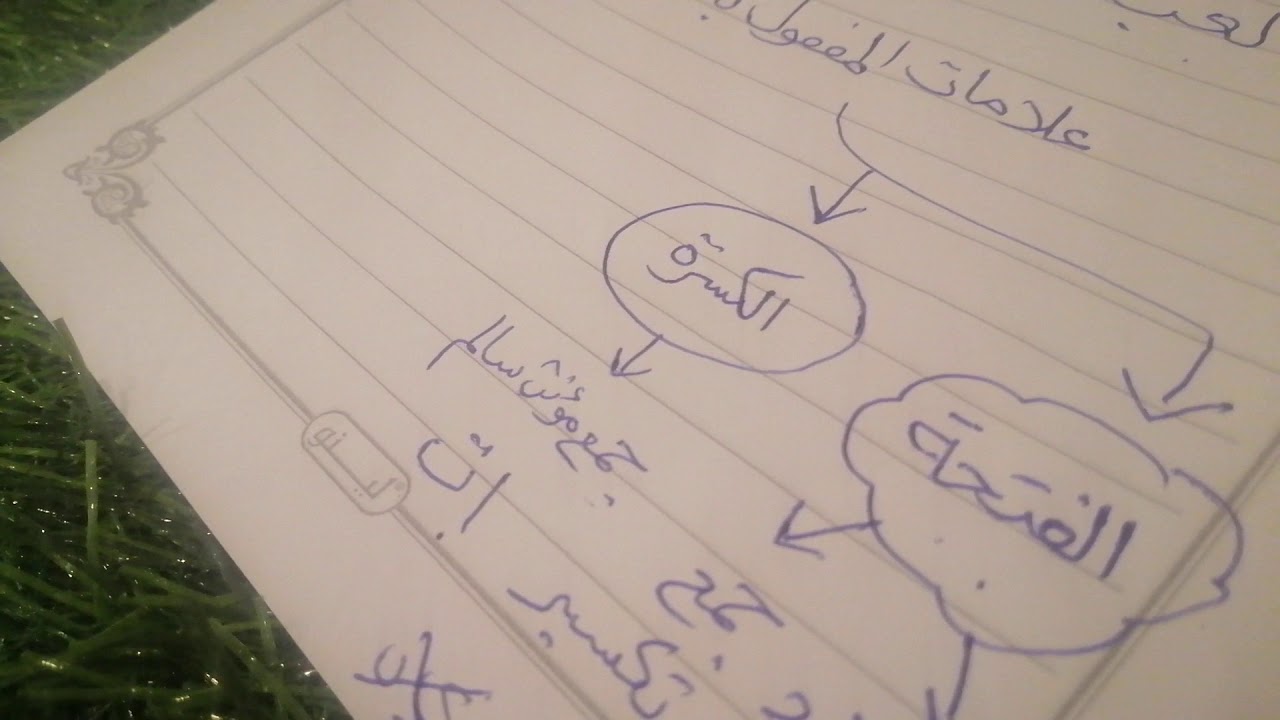 لعب
علامات المفعول
الكسرة
الفتحة
جمع مؤنث سالم
ات
جمع
تكسير